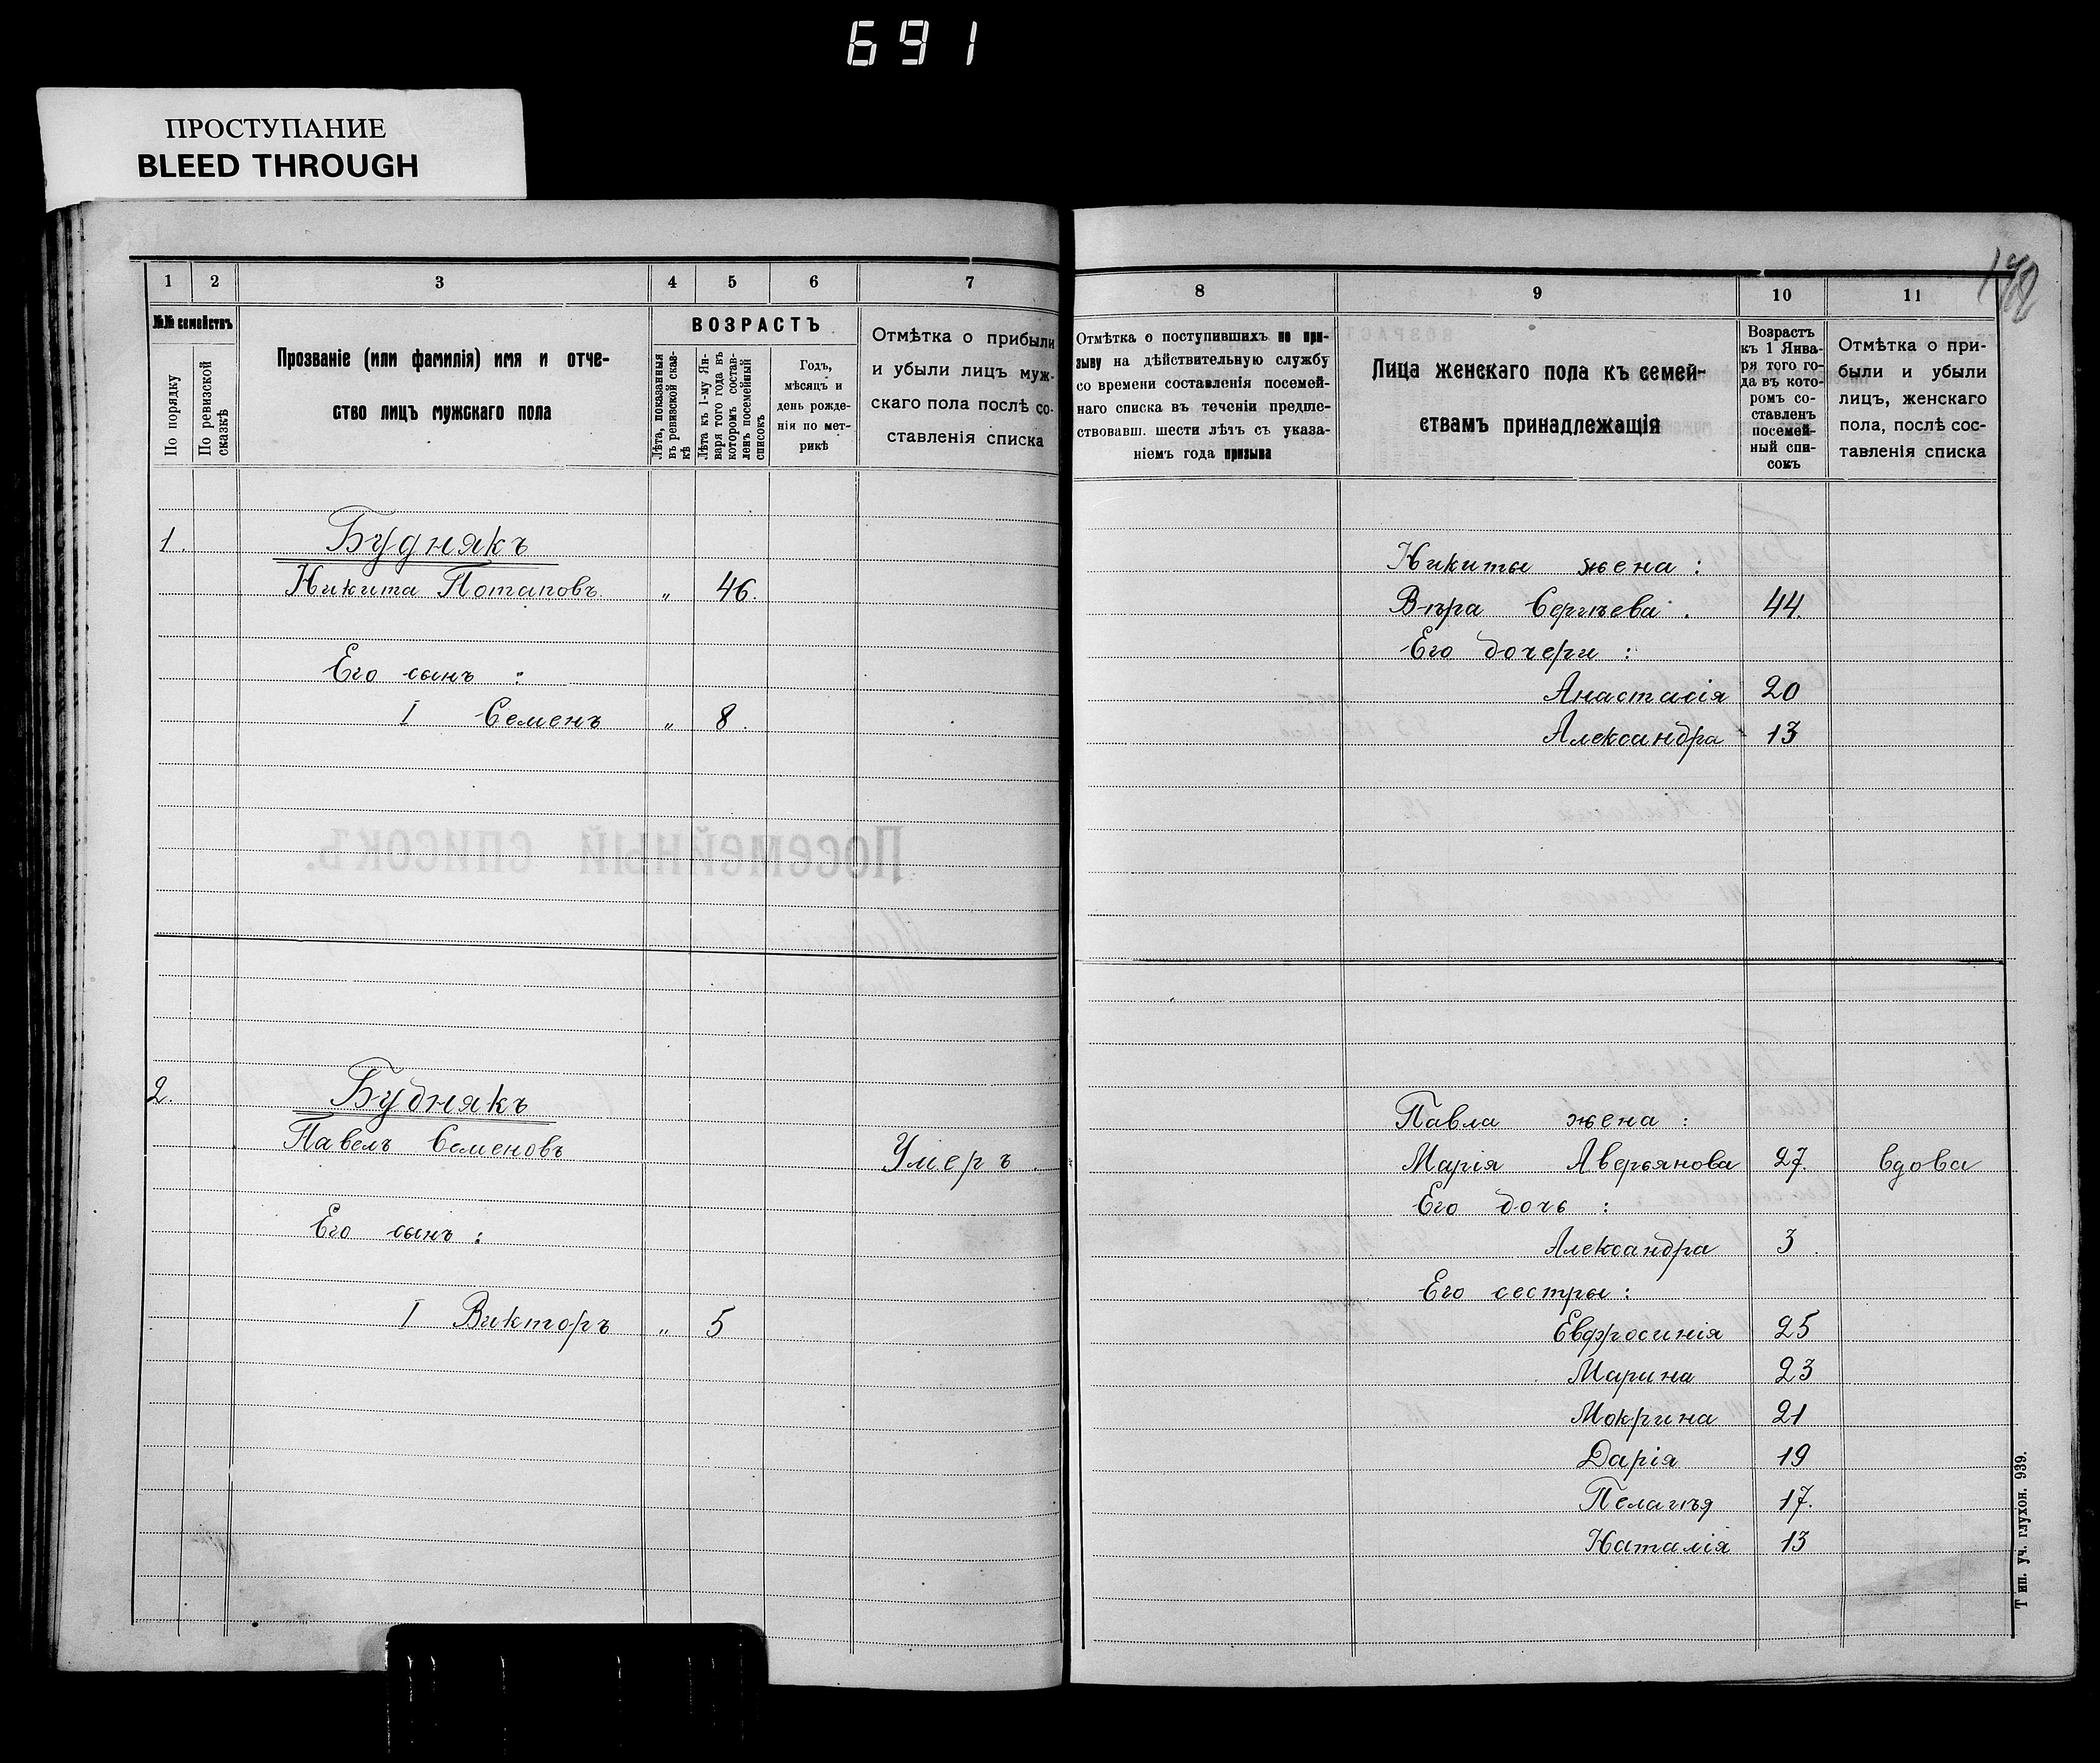 691
ПРОСТУПАНИЕ
BLEED THROUGH
1 2 3 4 5 6 7
№№ семействъ
По порядку
По ревизской сказкѣ
Прозваніе (или фамилія) имя и отче-
ство лицъ мужскаго пола
ВОЗРАСТЪ
Лѣта, показанныя
въ ревизской сказ-
кѣ
Лѣта къ 1-му Ян-
варя того года въ
которомъ состав-
ленъ посемейный
списокъ
Годъ,
мѣсяцъ и
день рожде-
нія по мет-
рикѣ
Отмѣтка о прибыли
и убыли лицъ муж-
скаго пола послѣ со-
ставленія списка
1. Буднякъ
Никита Потаповъ. „ 46.
Его сынъ :
I Семенъ „ 8.
Посемейный списокъ.
2. Буднякъ
Павелъ Семеновъ Умеръ.
Его сынъ :
I Викторъ „ 5
8 9 10 11
Отмѣтка о поступившихъ по при-
зыву на дѣйствительную службу
со времени составленія посемей-
наго списка въ теченіи предше-
ствовавш. шести лѣтъ съ указа-
ніемъ года призыва
Лица женскаго пола къ семей-
ствамъ принадлежащія
Возрастъ
къ 1 Янва-
ря того го-
да въ кото-
ромъ со-
ставленъ
посемей-
ный спи-
сокъ
Отмѣтка о при-
были и убыли
лицъ, женскаго
пола, послѣ сос-
тавленія списка
Никиты жена :
Вѣра Сергѣева. 44.
Его дочери :
Анастасія 20
Александра 13
Павла жена :
Марія Аверьянова 27. вдова
Его дочь :
Александра 3.
Его сестры :
Евфросинія 25
Марина 23
Мокрина 21
Дарія 19
Пелагѣя 17.
Наталія 13
Тип. уч. глухон. 939.